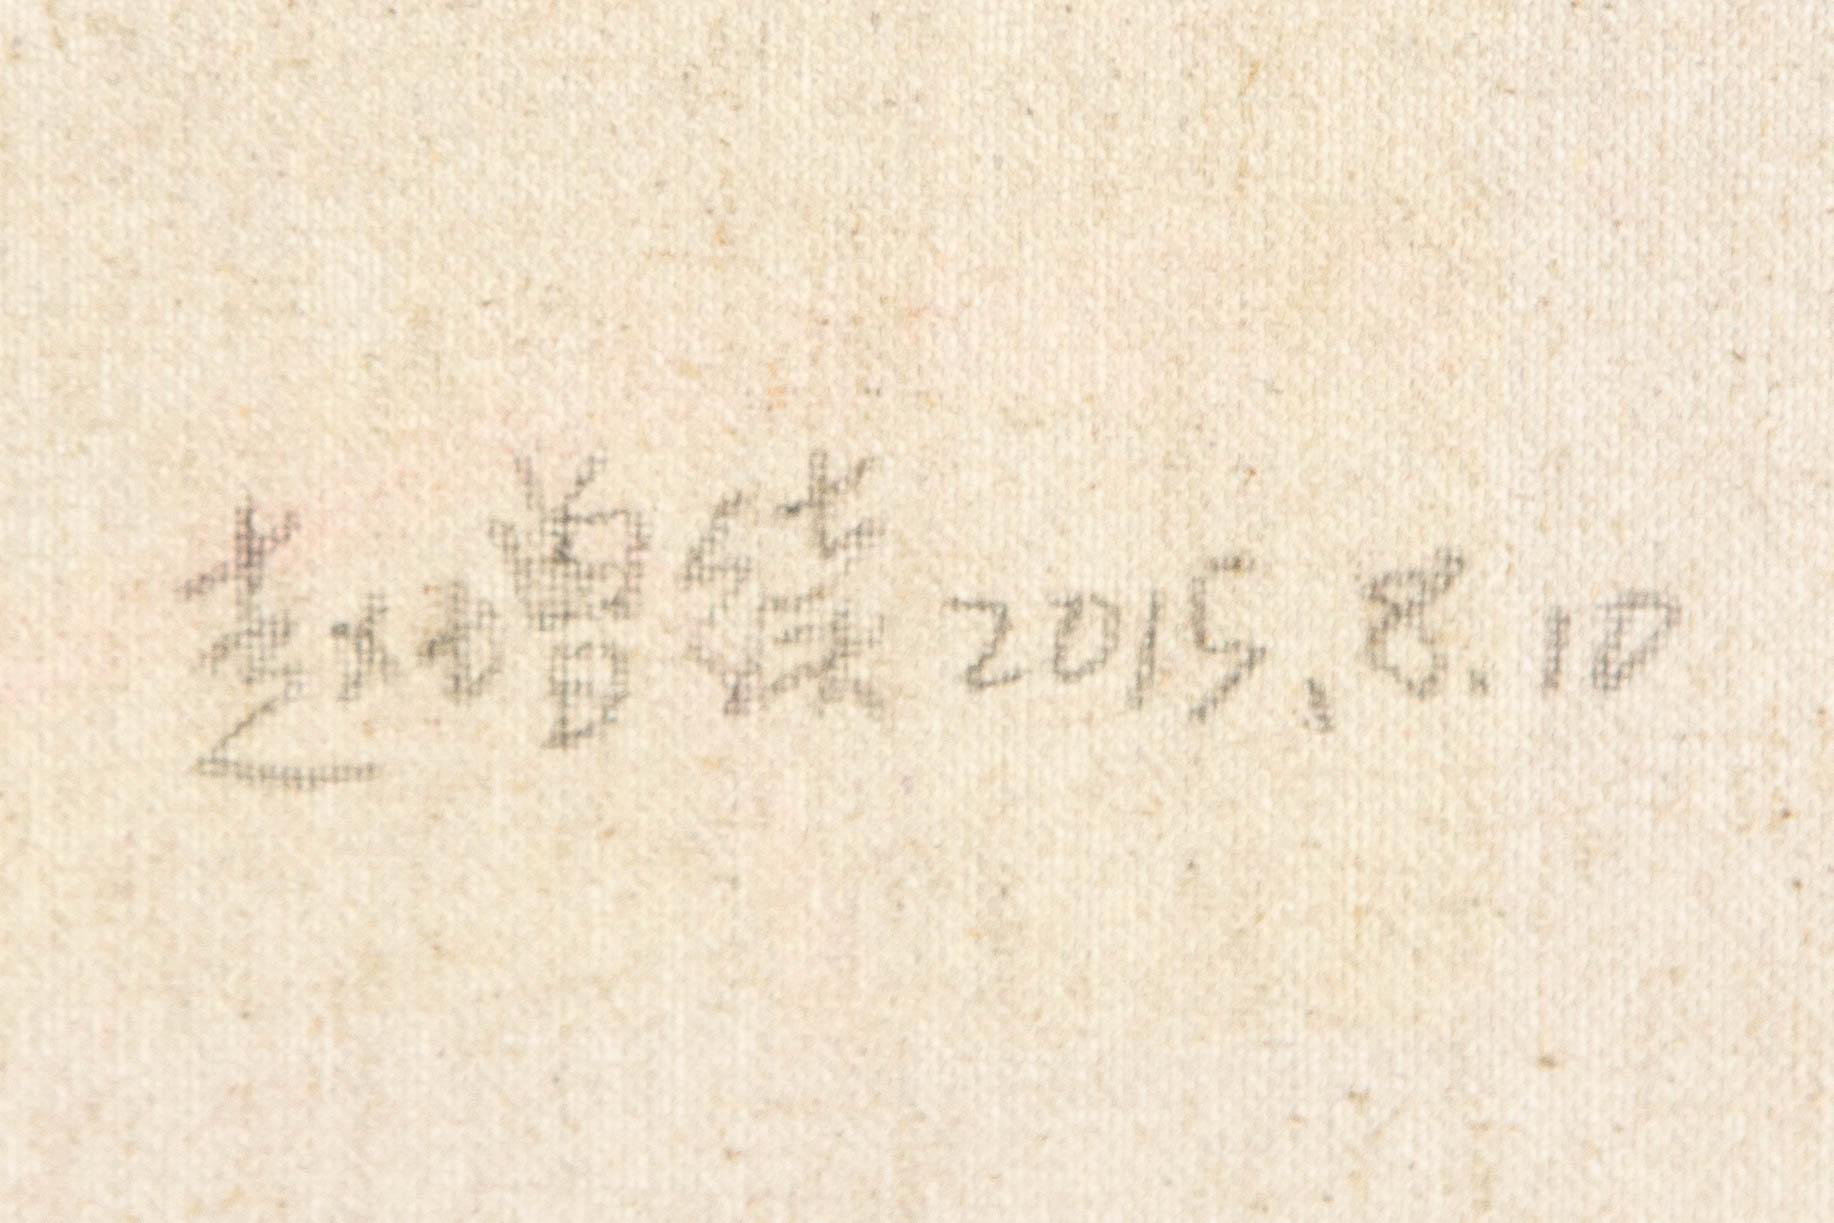 赵增 2015.8.10